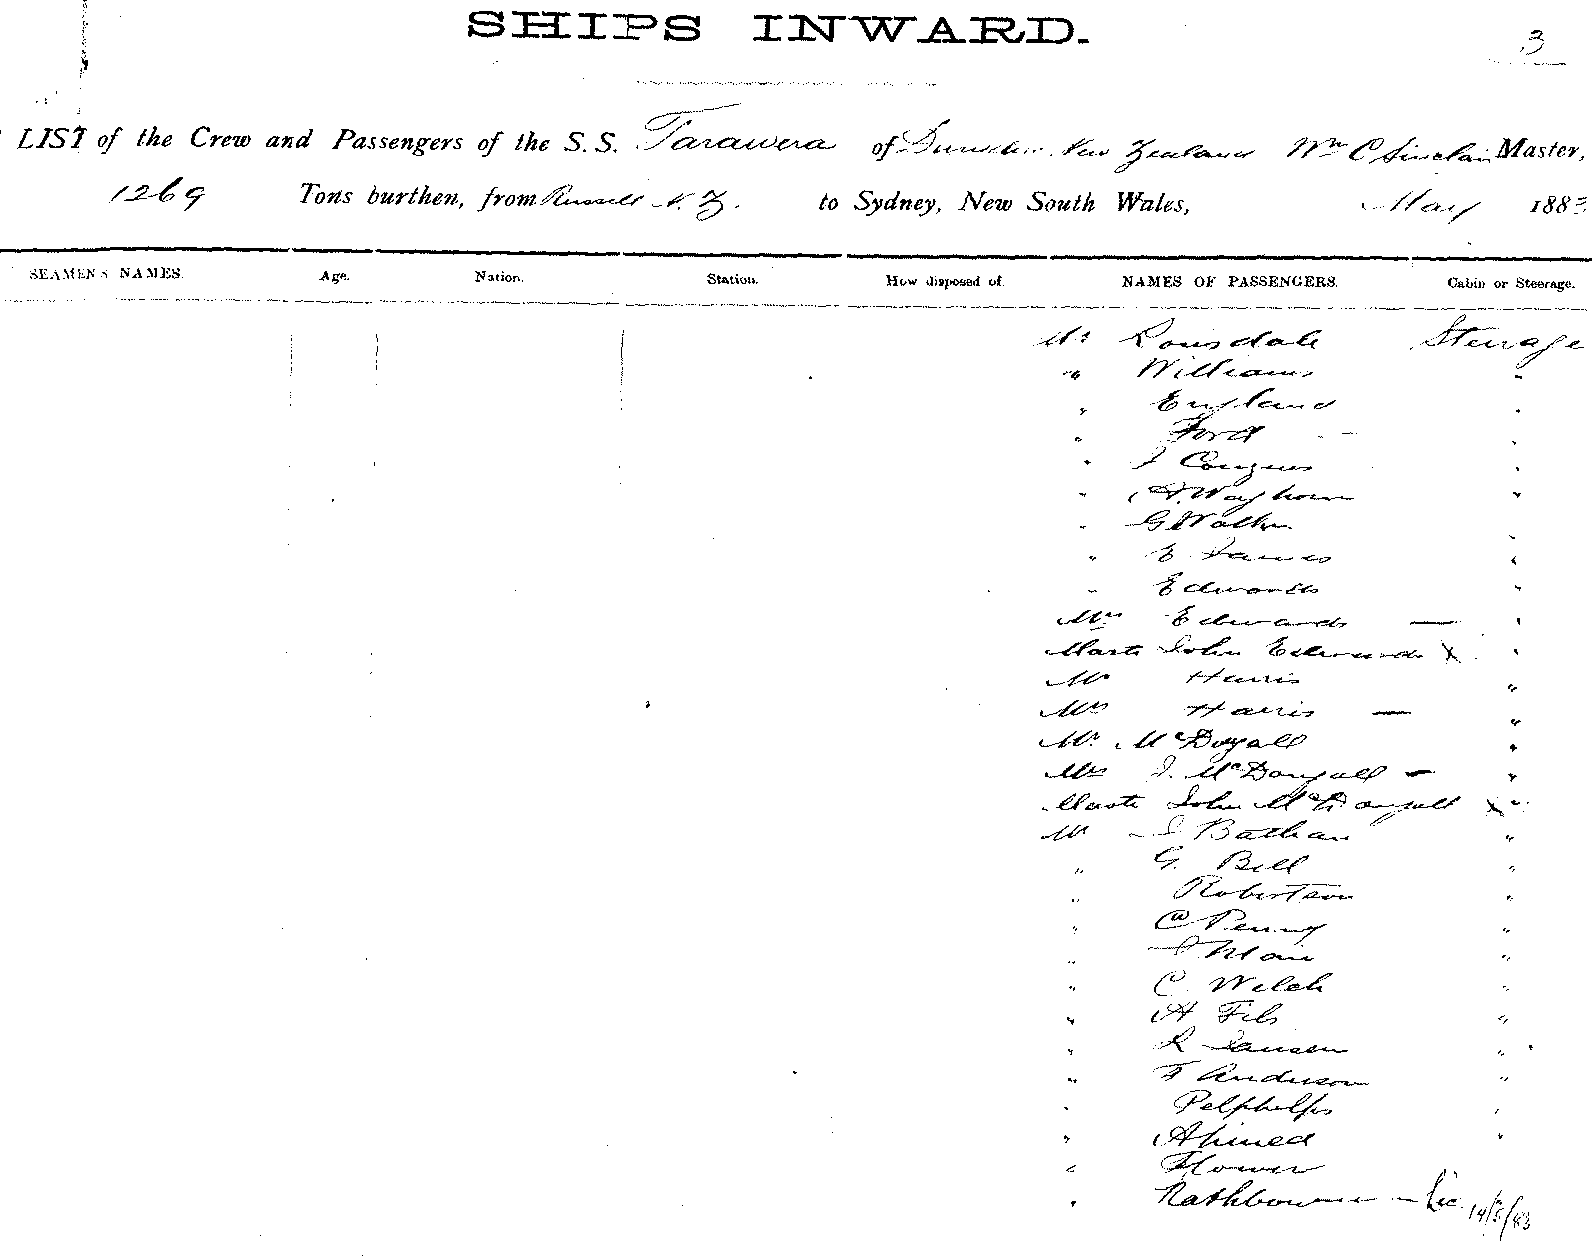 SHIPS INWARD.
3
LIST of the Crew and Passengers of the S.S. Tarawera of Dunedin New Zealand Wm C Sinclair Master,
1269 Tons burthen, from Russell N.Z. to Sydney, New South Wales, May 1883
SEAMENS NAMES. Age. Nation. Station. How disposed of. NAMES OF PASSENGERS. Cabin or Steerage.
Mr Lonsdale Steerage
" Williams "
" England "
" Ford — "
" J "
" A. "
" G Walker "
" E James "
" Edwards "
Mrs Edwards — "
Mastr John Edwards X "
Mr Harris "
Mrs Harris — "
Mr McDogall "
Mrs J. McDougall — "
Mastr John McDougall X "
Mr J "
" G. Bell "
" Robertson "
" Penny "
" J Mair "
" C. Welch "
" A Fils "
" Jansen "
" F Anderson "
" Pelphelps "
" Ahmed "
" Flower
" Rathbourne — 14/5/83